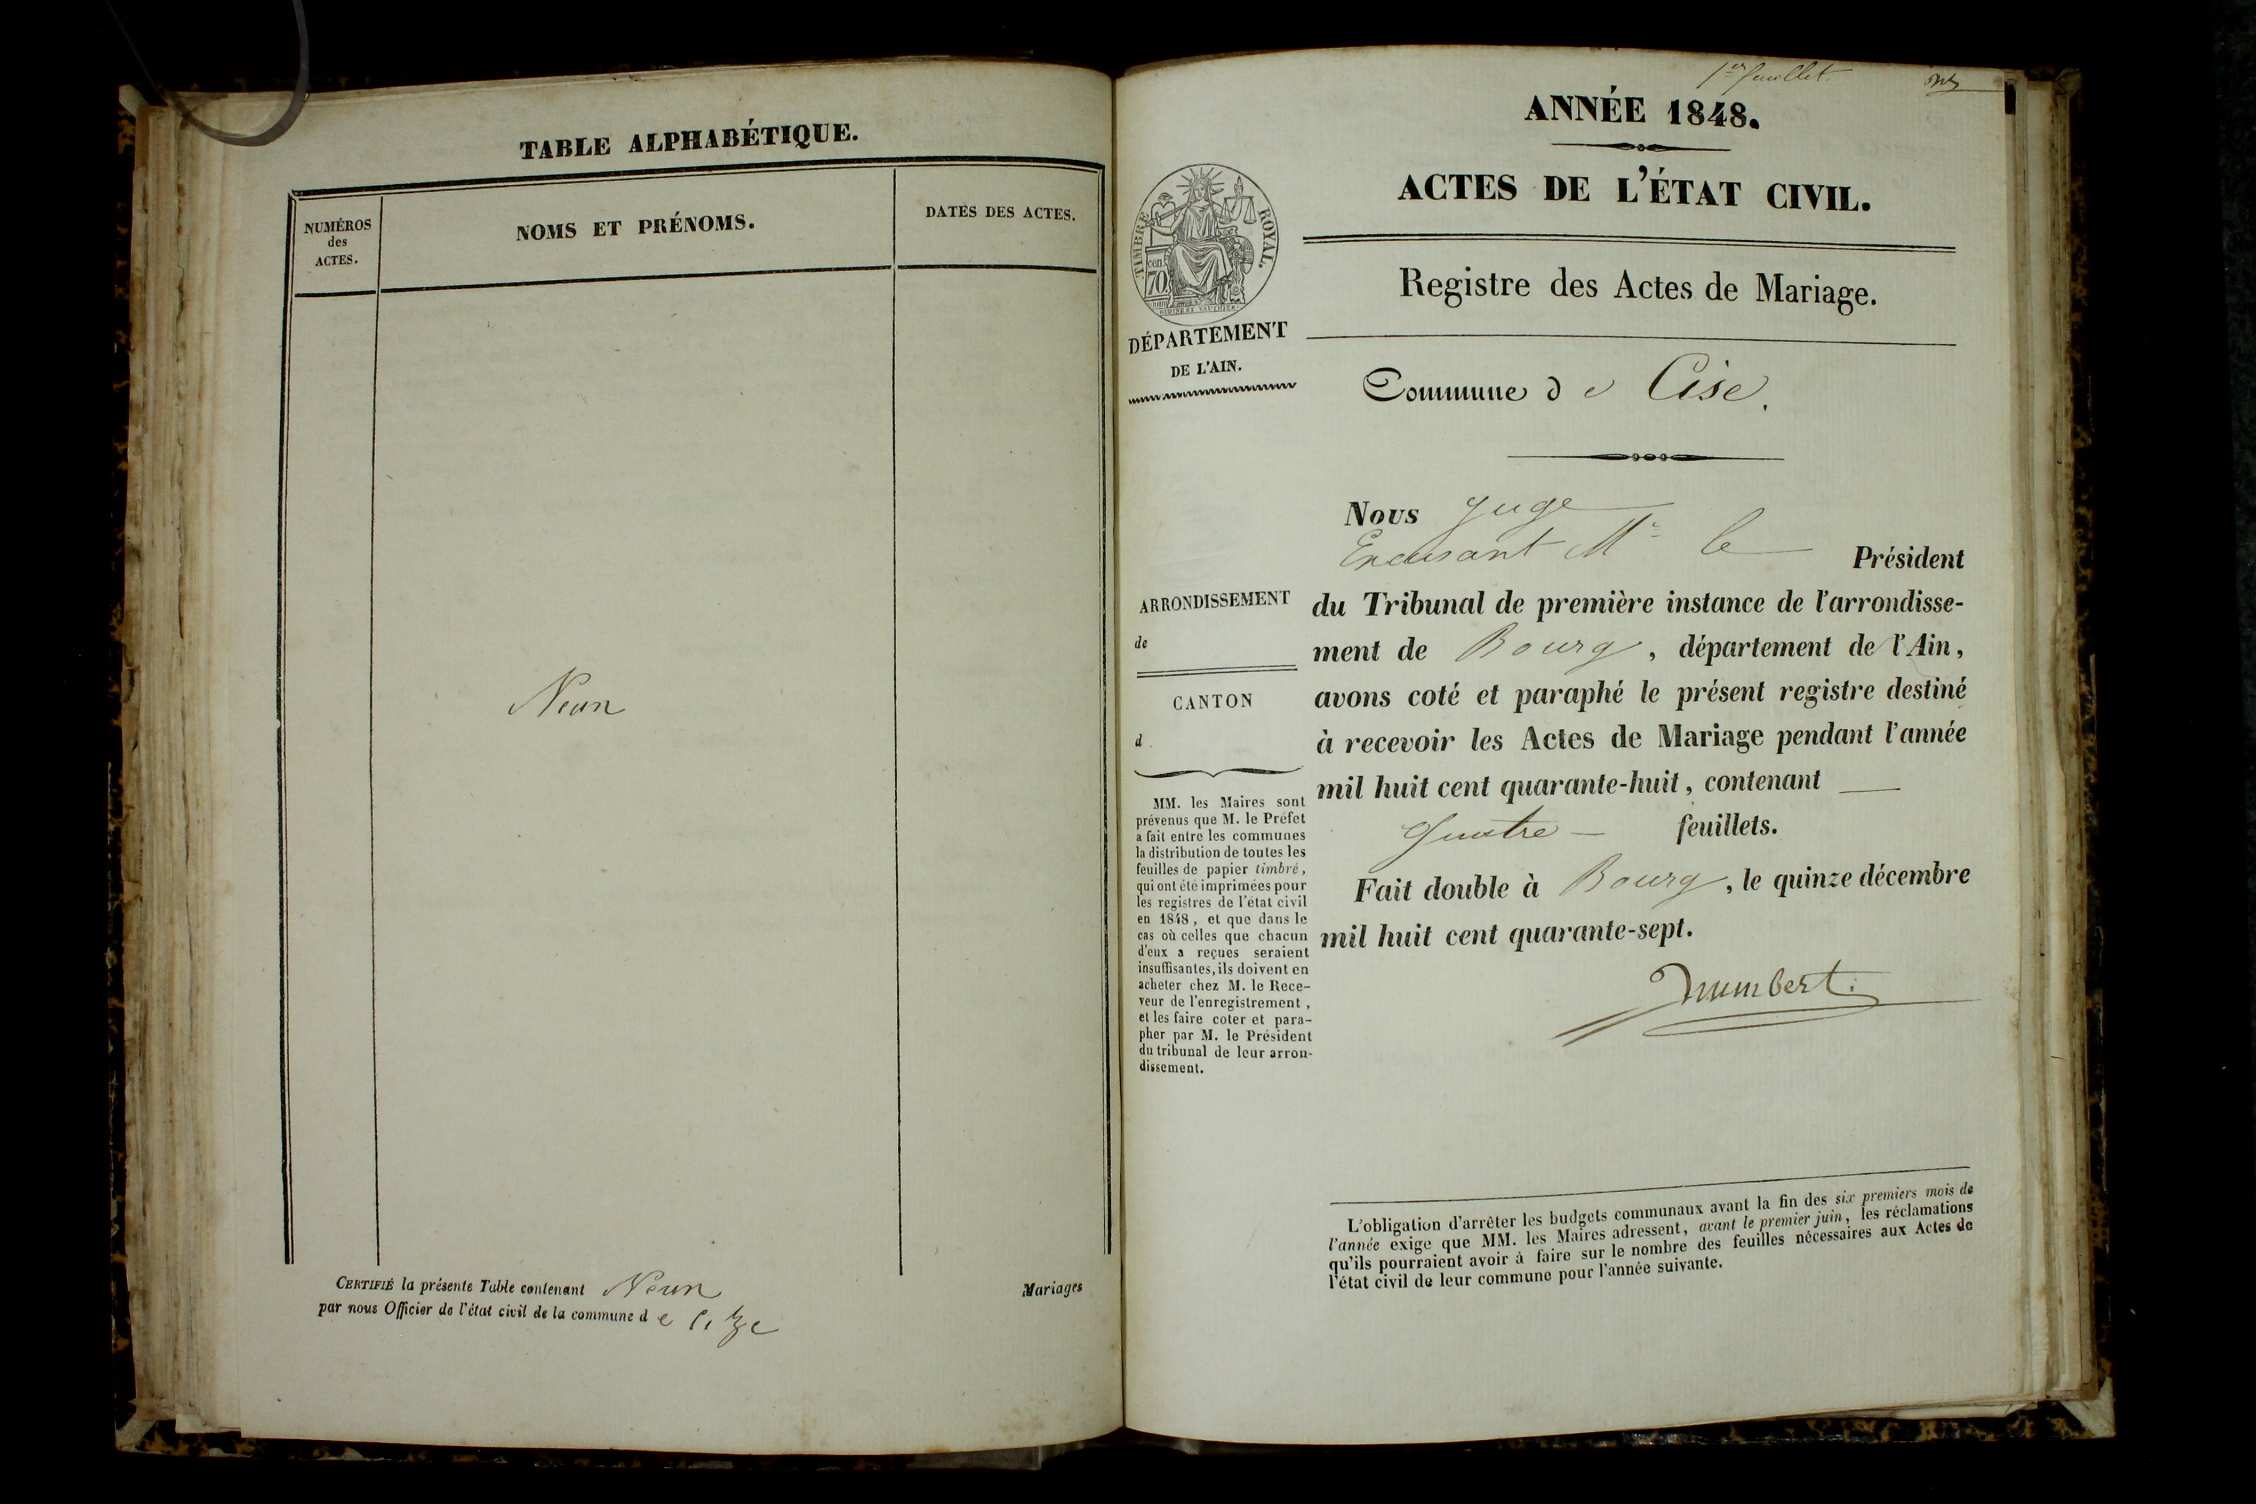 TABLE ALPHABÉTIQUE.
NUMÉROS
des
ACTES.
NOMS ET PRÉNOMS.
DATES DES ACTES.
Neun
CERTIFIÉ la présente Table contenant Neun Mariages
par nous Officier de l'état civil de la commune d e Cize
1er feuillet.
ANNÉE 1848.
ACTES DE L'ÉTAT CIVIL.
TIMBRE ROYAL.
cen.
70
DÉPARTEMENT
DE L'AIN.
Registre des Actes de Mariage.
Commune d e Cise.
ARRONDISSEMENT
de
CANTON
d
MM. les Maires sont
prévenus que M. le Préfet
a fait entre les communes
la distribution de toutes les
feuilles de papier timbré,
qui ont été imprimées pour
les registres de l'état civil
en 1848, et que dans le
cas où celles que chacun
d'eux a reçues seraient
insuffisantes, ils doivent en
acheter chez M. le Rece-
veur de l'enregistrement,
et les faire coter et para-
pher par M. le Président
du tribunal de leur arron-
dissement.
Nous Juge
Excusant Mr le Président
du Tribunal de première instance de l'arrondisse-
ment de Bourg, département de l'Ain,
avons coté et paraphé le présent registre destiné
à recevoir les Actes de Mariage pendant l'année
mil huit cent quarante-huit, contenant
quatre feuillets.
Fait double à Bourg, le quinze décembre
mil huit cent quarante-sept.
L'obligation d'arrêter les budgets communaux avant la fin des six premiers mois de
l'année exige que MM. les Maires adressent, avant le premier juin, les réclamations
qu'ils pourraient avoir à faire sur le nombre des feuilles nécessaires aux Actes de
l'état civil de leur commune pour l'année suivante.